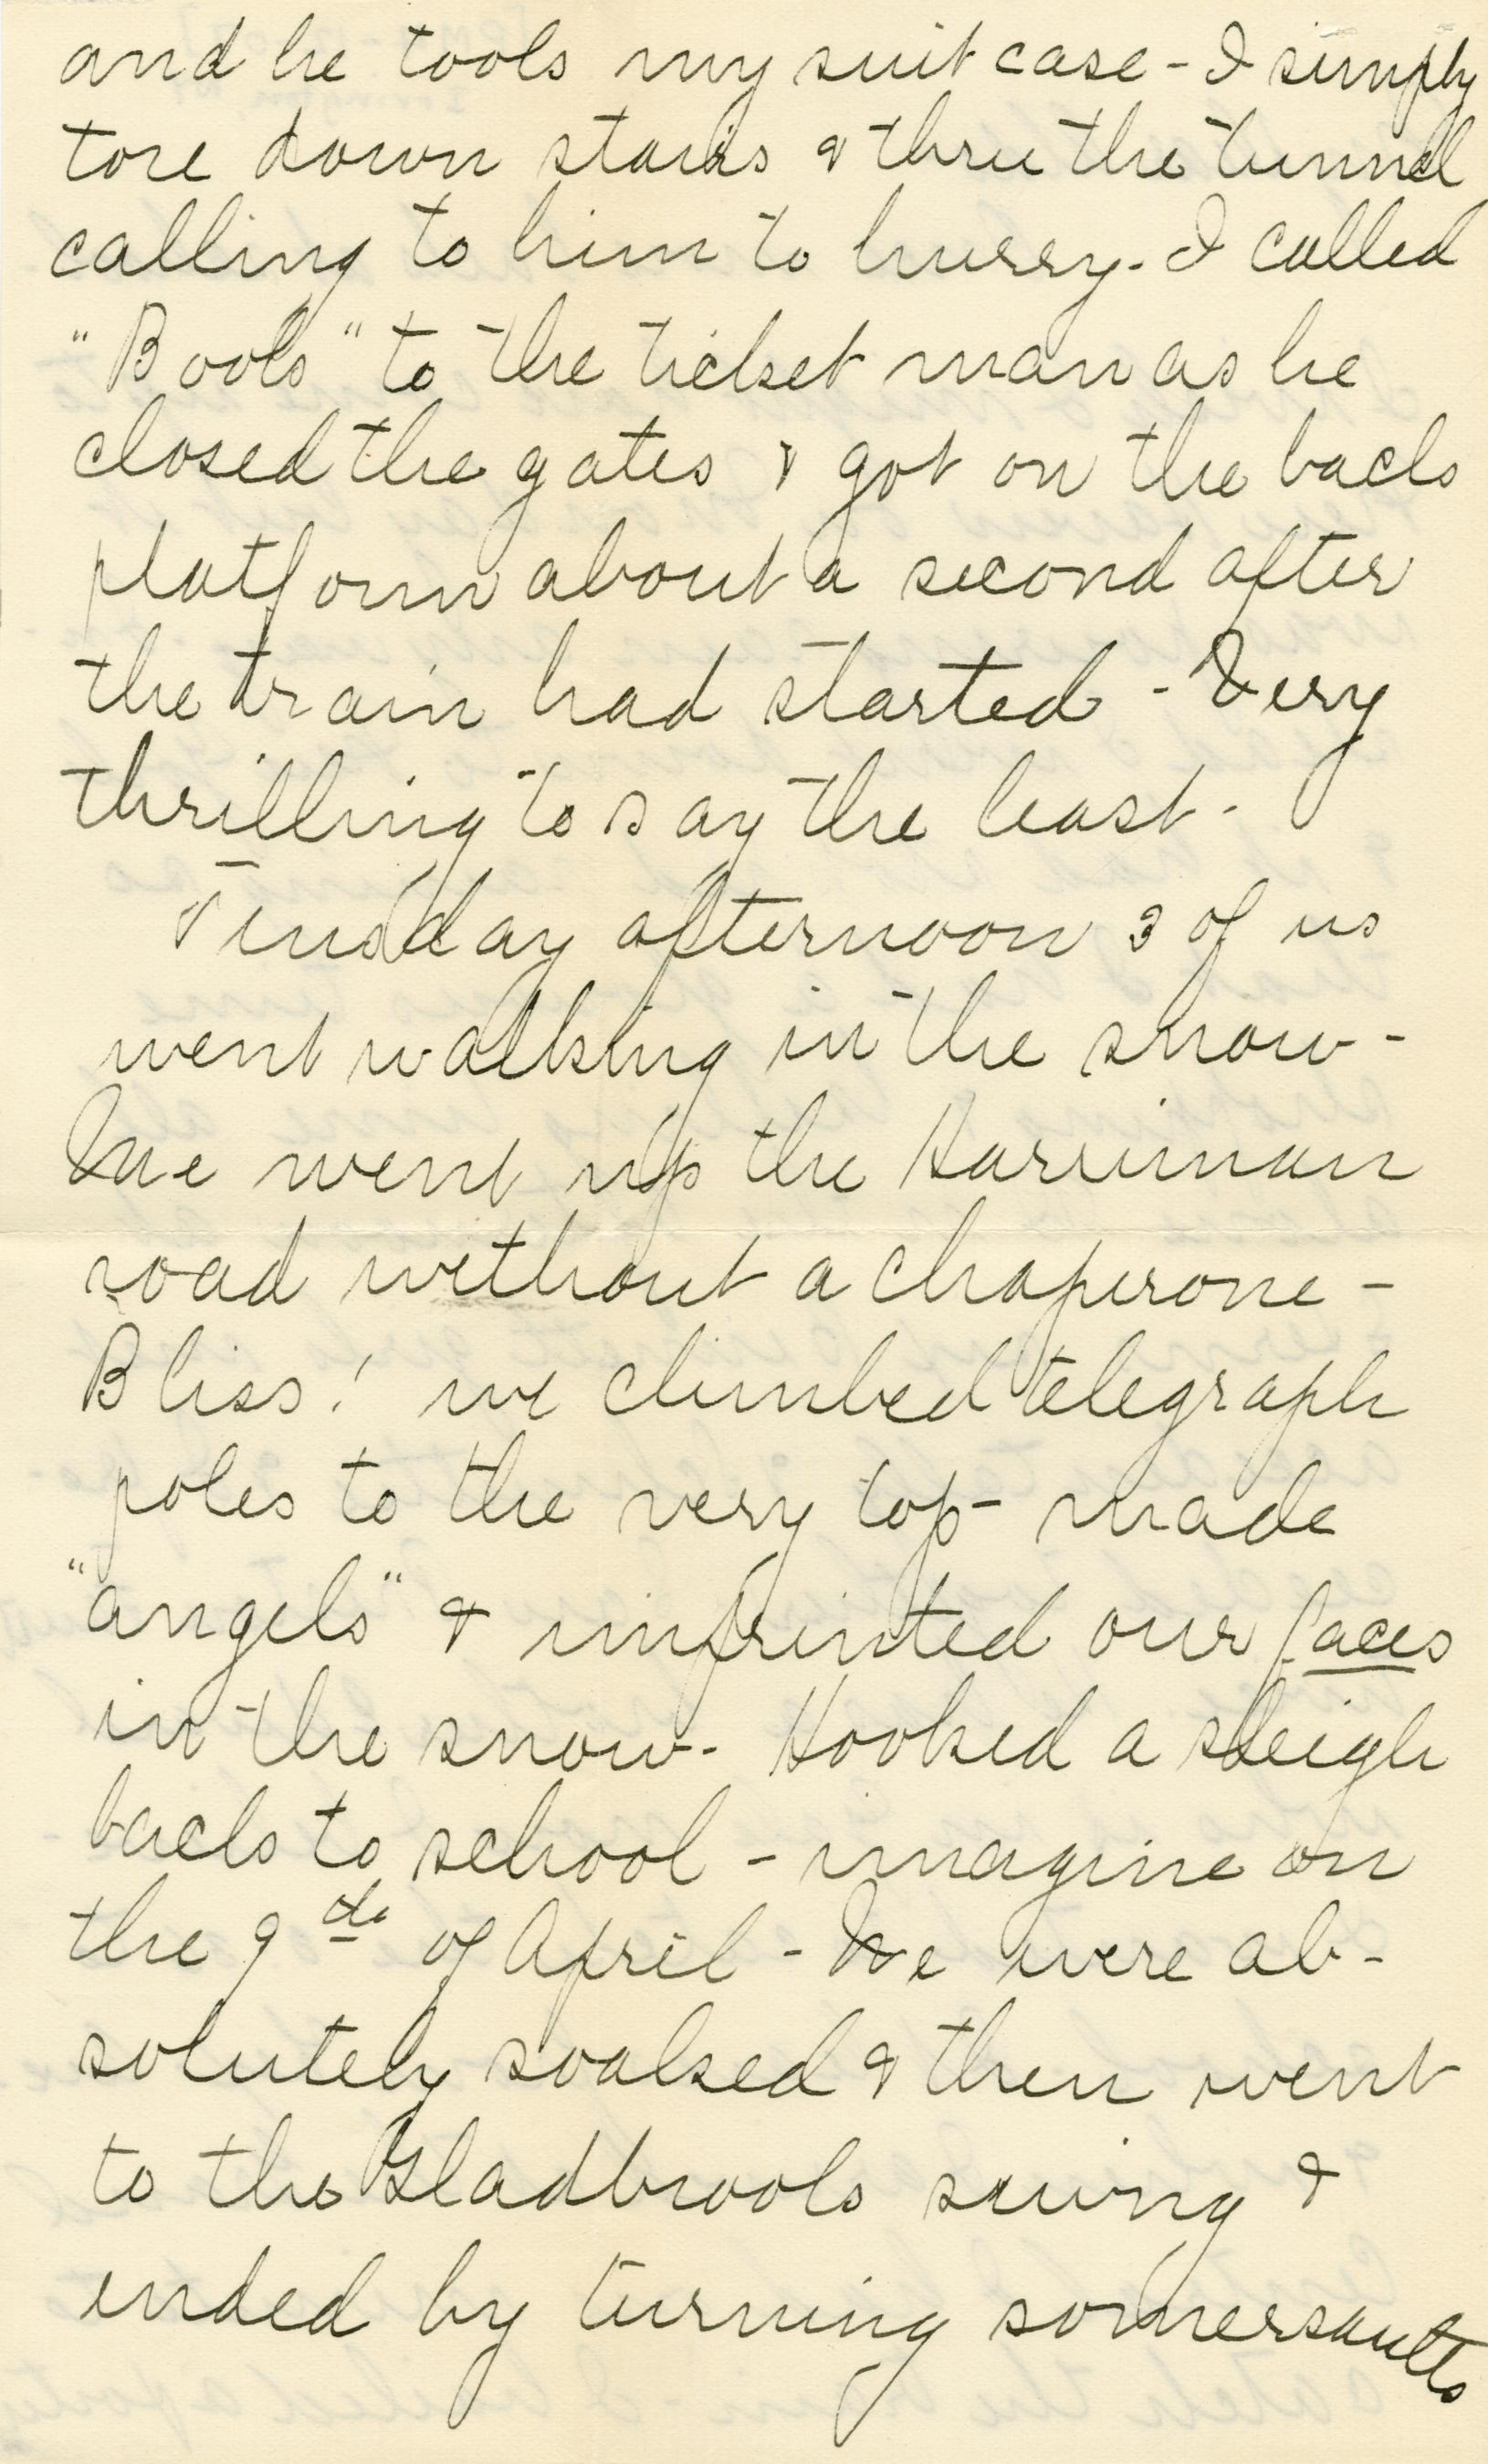 and he took my suit case - I simply
tore down stairs & thru the tunnel
calling to him to hurry. I called
"Book" to the ticket man as he
closed the gates & got on the back
platform about a second after
the train had started - Very
thrilling to say the least -
Tuesday afternoon 3 of us
went walking in the snow -
We went up the Harriman
road without a chaperone -
Bliss! we climbed telegraph
poles to the very top - made
"angels" & imprinted our faces
in the snow - Hooked a sleigh
back to school - imagine on
the 9th of April - We were ab-
solutely soaked & then went
to the Gladbrook swing &
ended by turning somersaults